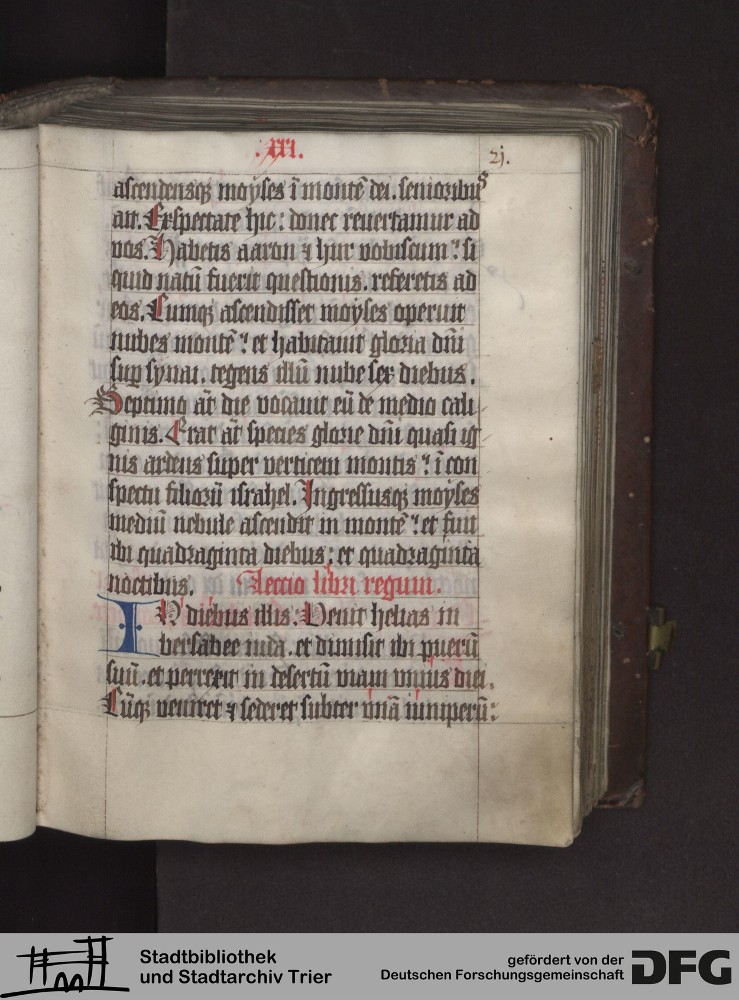 .XXI.
21.
ascendensq(ue) moyses ī montē dei. seniorib(us)
ait. Exspectate hic: donec reuertamur ad
vos. Habetis aaron ⁊ hur vobiscum: si
quid natū fuerit questionis. referetis ad
eos. Cumqꝫ ascendisset moyses operuit
nubes montē: et habitauit gloria dn̄i
suꝑ synai. tegens illū nube sex diebus.
Septimo aūt die vocauit eū de medio cali
ginis. Erat aūt species glorie dn̄i quasi ig
nis ardens super verticem montis: ī con
spectu filiorū israhel. Ingressusqꝫ moyses
mediū nebule ascendit in montē: et fuit
ibi quadraginta diebus: et quadraginta
noctibus. Leccio libri regum.
IN diebus illis: Venit helias in
bersabee iuda. et dimisit ibi puerū
suū. et perrexit in desertū viam vnius diei.
Cūqꝫ veniret ⁊ sederet subter vnā iuniperū:
Stadtbibliothek
und Stadtarchiv Trier
gefördert von der
Deutschen Forschungsgemeinschaft
DFG